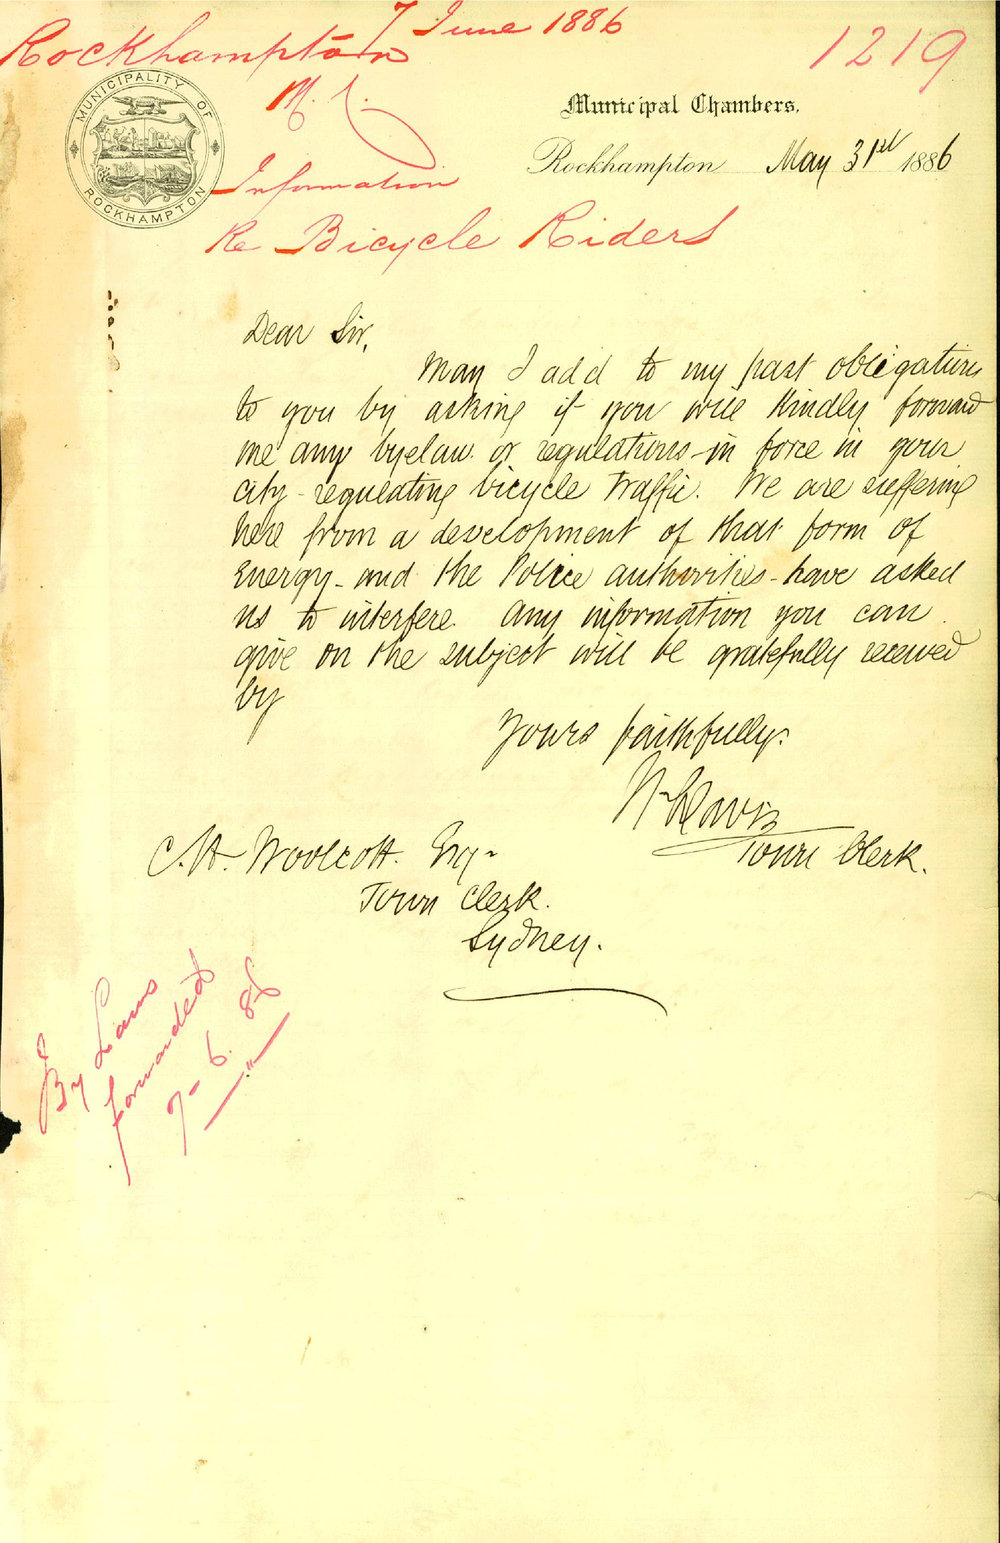 7 June 1886
Rockhampton
1219
M. C.
MUNICIPALITY OF
ROCKHAMPTON
Municipal Chambers.
Rockhampton May 31st 1886
Information
Re Bicycle Riders
Dear Sir,
May I add to my past obligations
to you by asking if you will kindly forward
me any byelaw or regulations in force in your
city - regulating bicycle traffic. We are suffering
here from a development of that form of
Energy - and the Police authorities - have asked
us to interfere. Any information you can
give on the subject will be gratefully received
by
Yours faithfully.
Davis
Town Clerk.
C. H. Woolcott. Esq.
Town Clerk.
Sydney.
By Laws
forwarded
7 - 6. 86